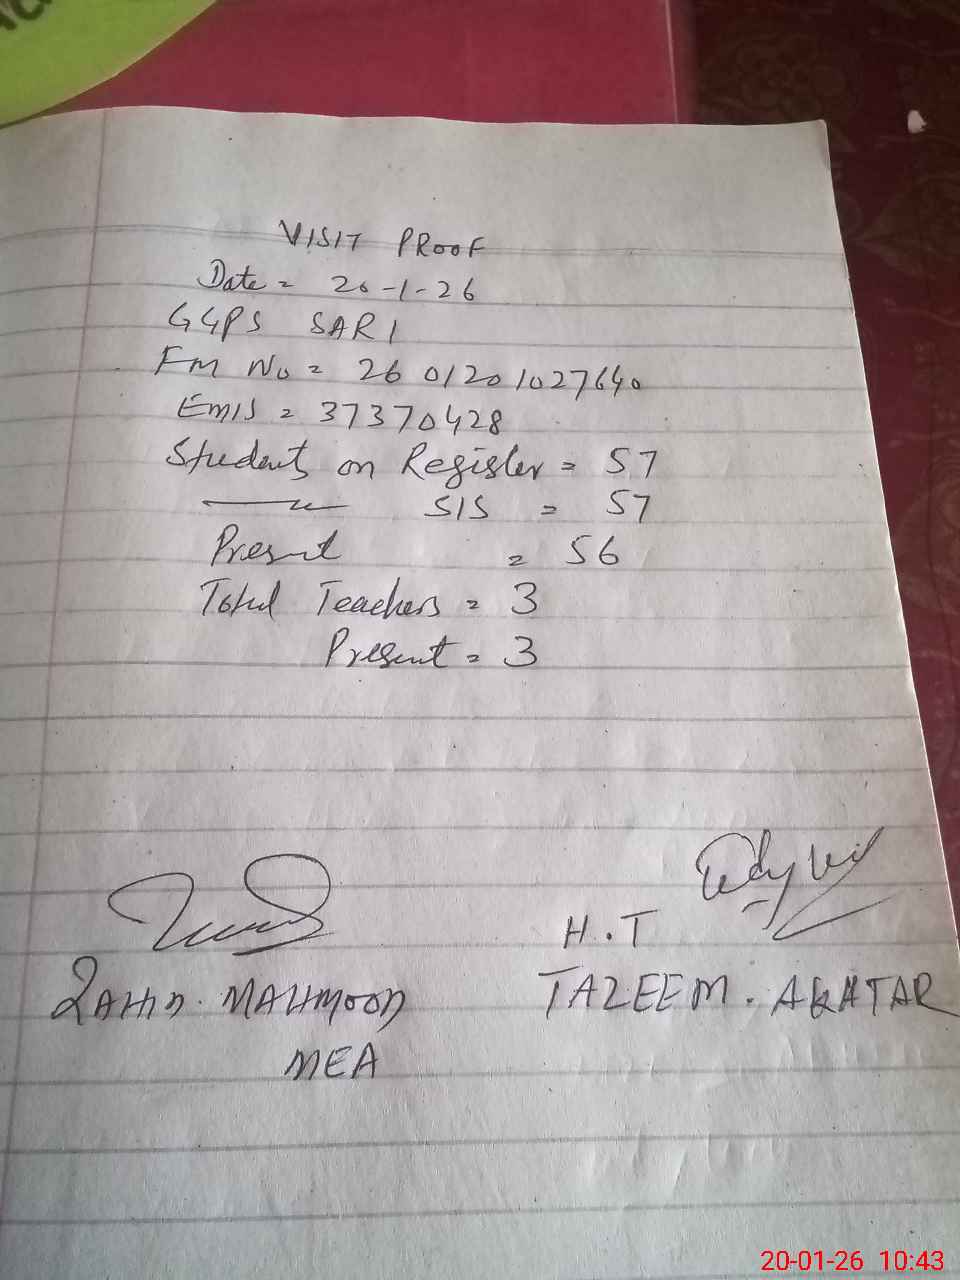 VISIT PROOF
Date = 20-1-26
GGPS SARI
FM No = 2601201027640
EMIS = 37370428
Students on Register = 57
SIS = 57
Present = 56
Total Teachers = 3
Present = 3
H.T
MAHMOOD
TAZEEM. AKHTAR
MEA
20-01-26 10:43